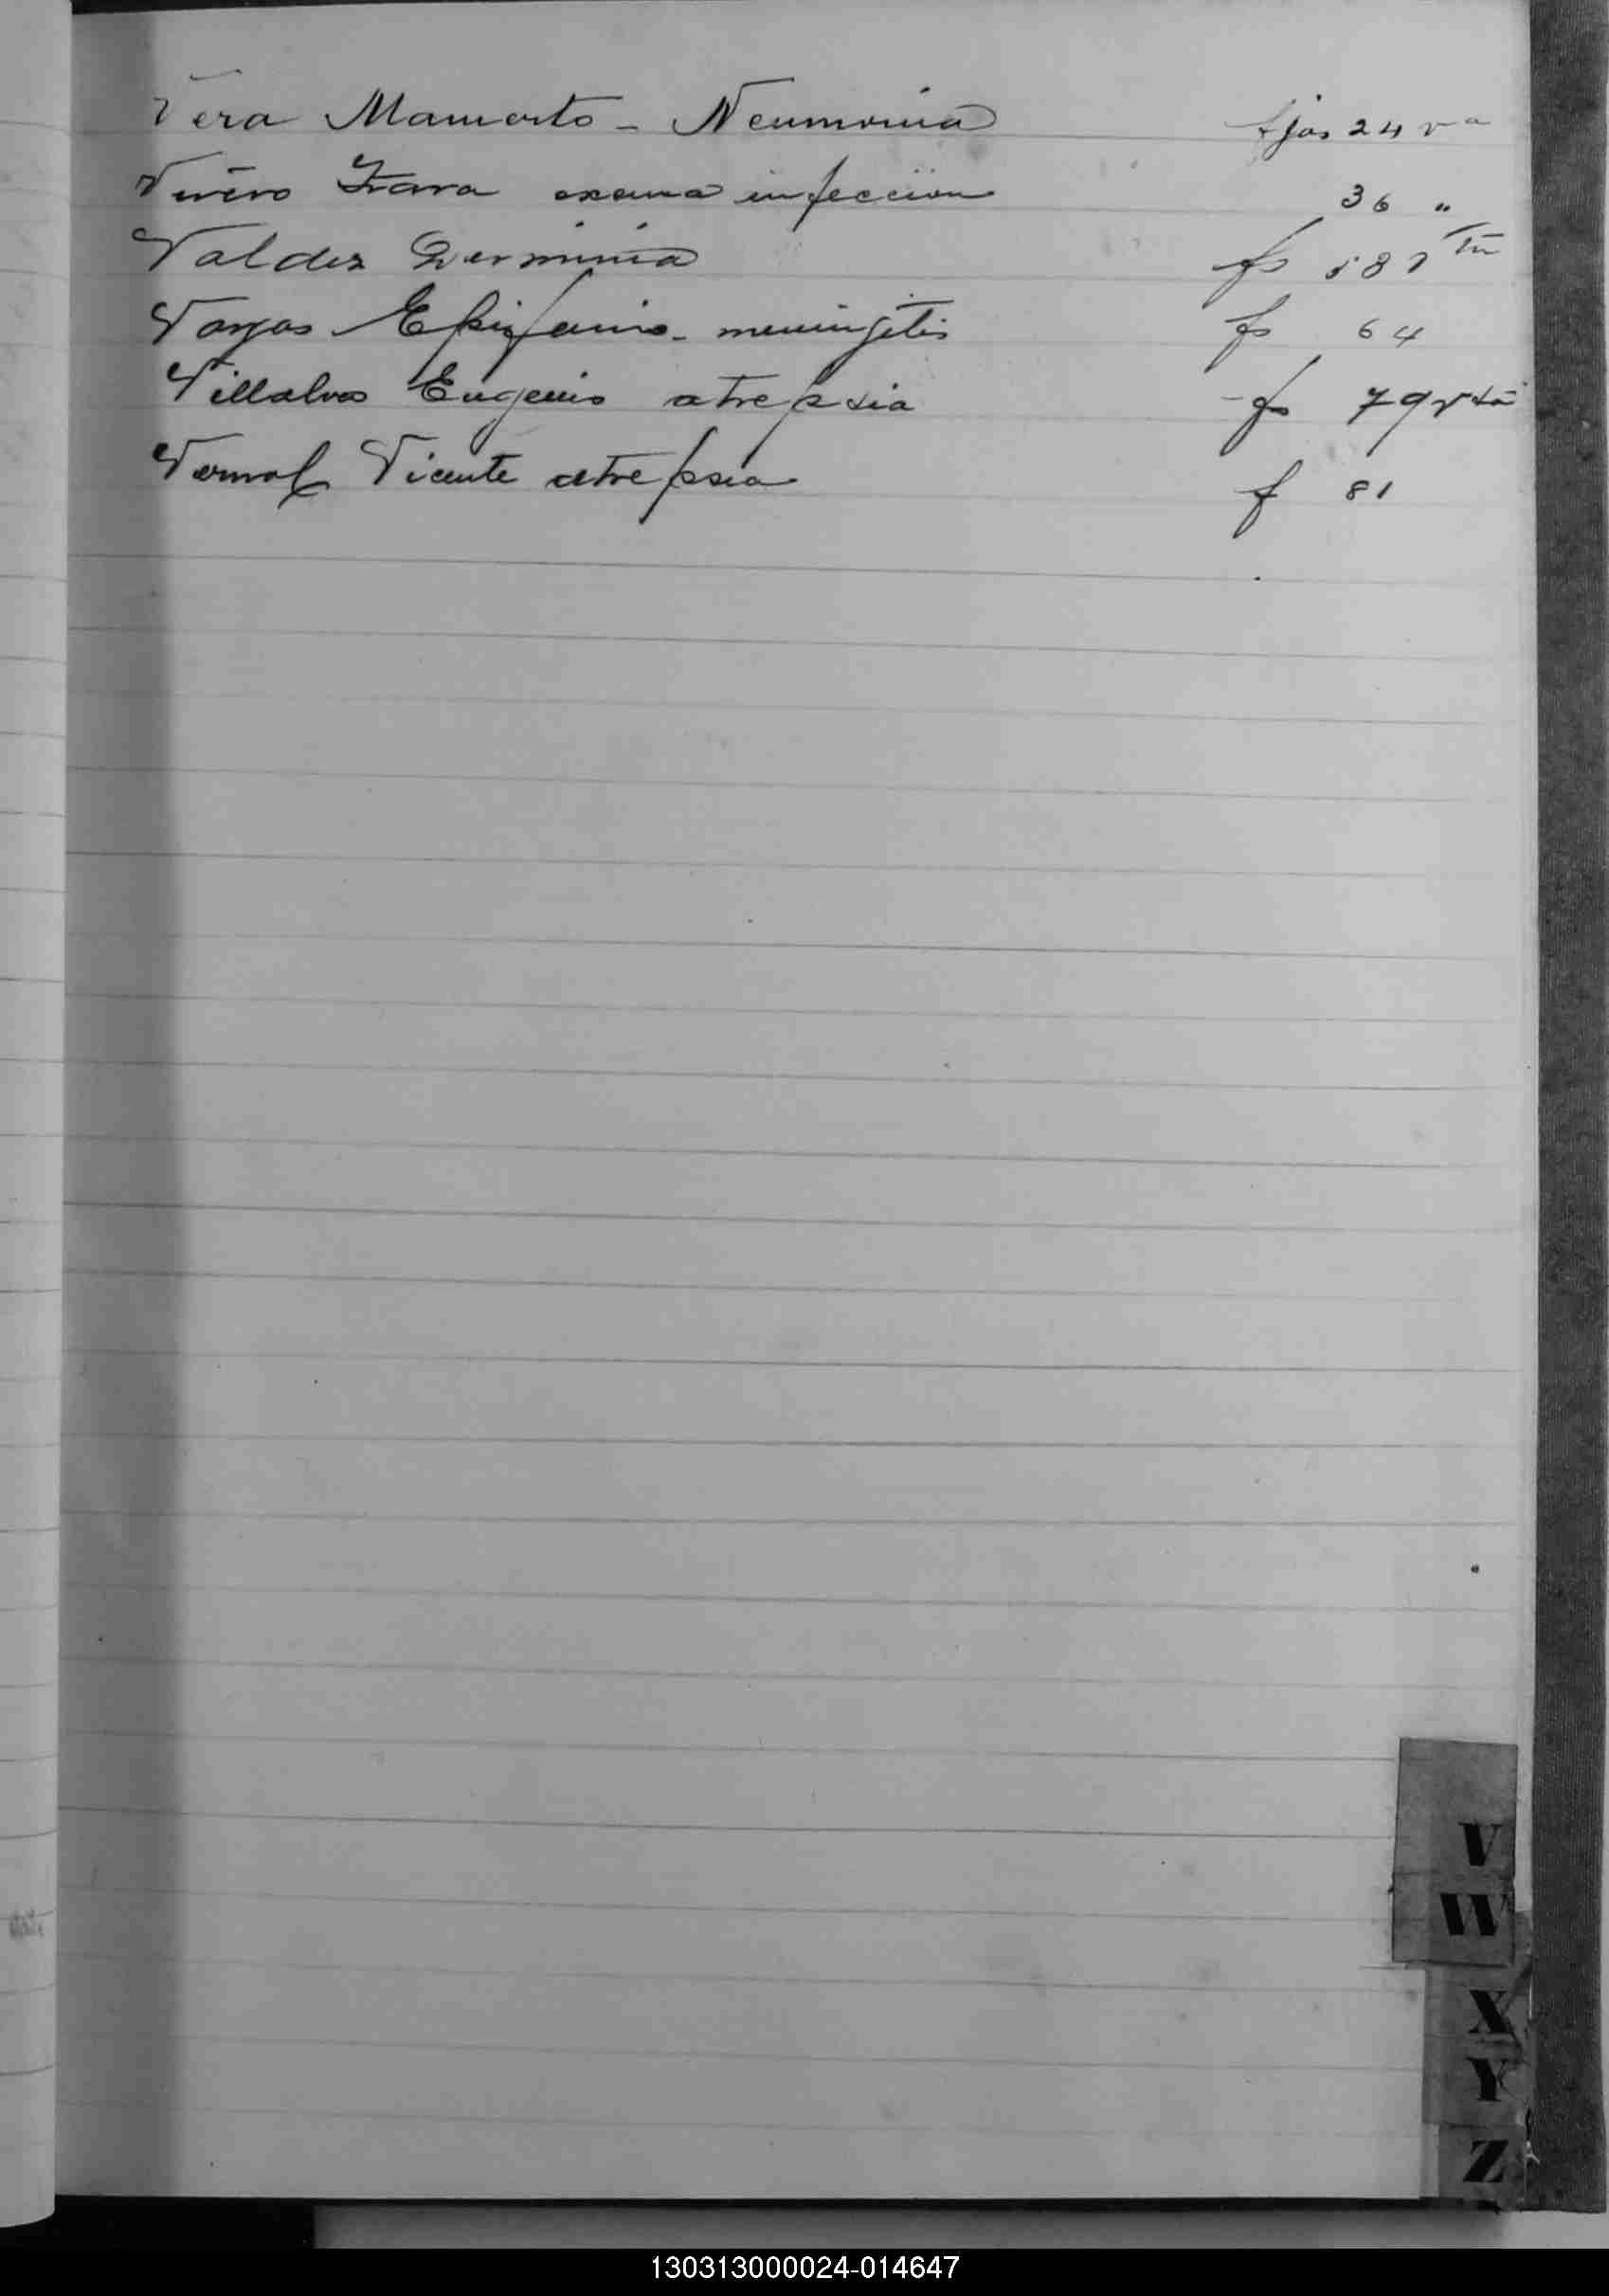 Vera Mamerto - Neumonia fjas 24 va
Vivero infeccion 36 "
Valdez Herminia fs 58 vta
Vargas Epifanio - meningitis fs 64
Villalva Eugenio atrepsia fs 79 vta
Vernal Vicente atrepsia f 81
V
W
X
Y
Z
130313000024-014647